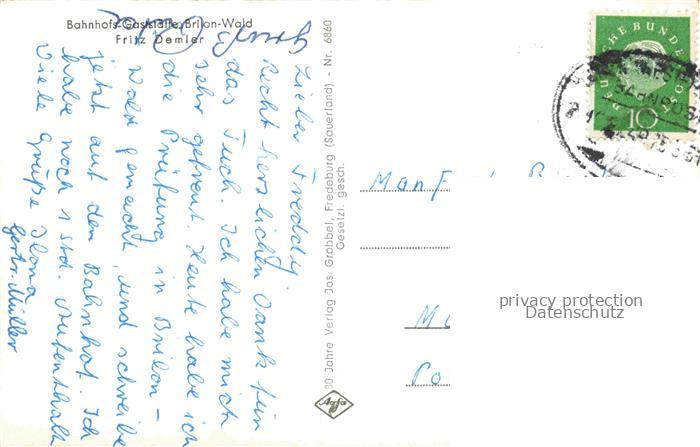 Bahnhofs-Gaststätte, Brilon-Wald
Fritz Demler
Lieber Freddy.
Recht herzlichen Dank für
das Tuch. Ich habe mich
sehr gefreut. Heute habe ich
die Prüfung in Brilon-
Wald gemacht, und schreibe
jetzt auf dem Bahnhof. Ich
habe noch 1 Std. Aufenthalt
Viele Grüße Ilona
Gertr. Müller
30 Jahre Verlag Jos. Grobbel, Fredeburg (Sauerland) - Nr. 6860
Gesetzl. gesch.
Agfa
DEUTSCHE BUNDESPOST
10
Manf
privacy protection
Datenschutz